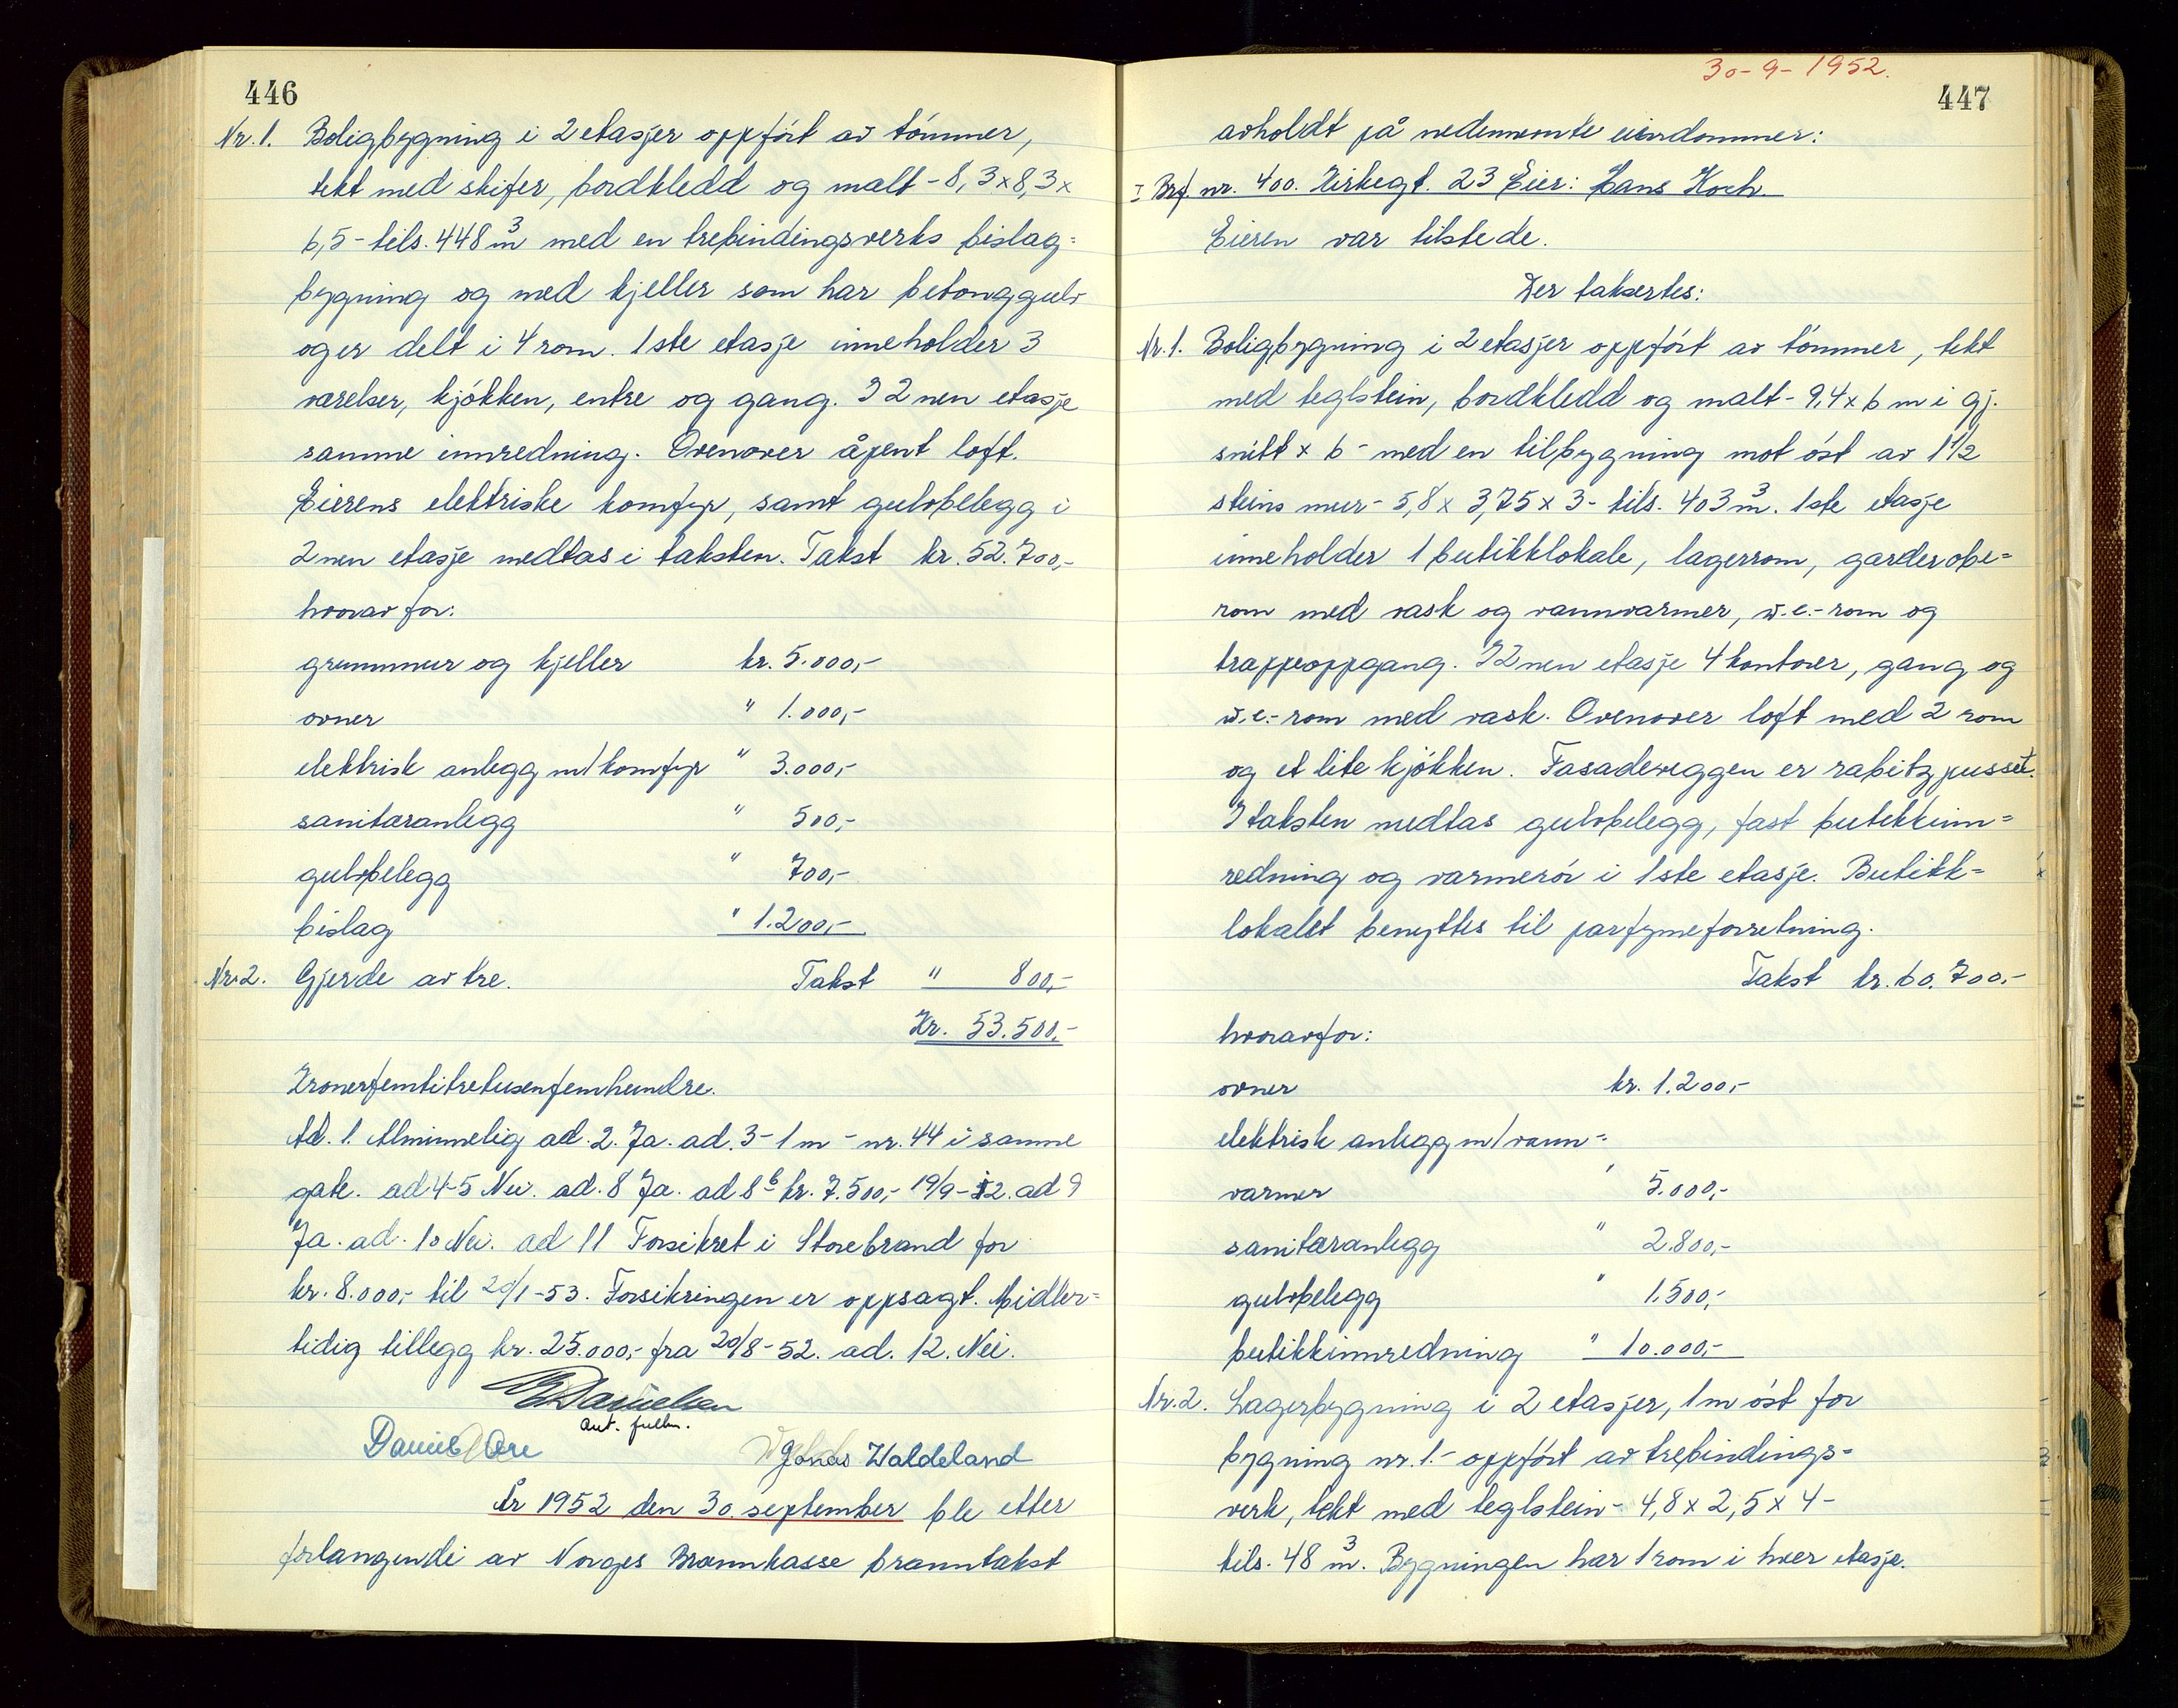 446
Nr. 1. Boligbygning i 2 etasjer oppført av tømmer,
tekt med skifer, bordkledd og malt - 8,3 x 8,3 x
6,5 - tils. 448 m³ med en trebindingsverks bislag=
bygning og med kjeller som har betonggulv
og er delt i 4 rom. 1ste etasje inneholder 3
værelser, kjøkken, entre og gang. I 2nen etasje
samme innredning. Ovenover åpent loft.
Eierens elektriske komfyr, samt gulvbelegg i
2nen etasje medtas i taksten. Takst kr. 52.700,-
hvorav for:
grunnmur og kjeller kr. 5.000,-
ovner " 1.000,-
elektrisk anlegg m/komfyr " 3.000,-
sanitæranlegg " 500,-
gulvbelegg " 700,-
bislag " 1.200,-
Nr. 2. Gjerde av tre. Takst " 800,-
Kr. 53.500,-
Kronerfemtitretusenfemhundre.
Ad. 1. Alminnelig ad. 2. Ja. ad. 3 - 1 m - nr. 44 i samme
gate. ad 4-5 Nei. ad. 8 Ja. ad 8 b kr. 7.500,- 19/9-52. ad 9
Ja. ad. 10 Nei. ad 11 Forsikret i Storebrand for
kr. 8.000,- til 20/1-53. Forsikringen er oppsagt. Midler=
tidig tillegg kr. 25.000,- fra 20/8-52. ad. 12. Nei.
Danielsen
aut. fullm.
Daniel Ore Jonas Waldeland
År 1952 den 30. september ble etter
forlangende av Norges Brannkasse branntakst
30-9-1952.
447
avholdt på nedennevnte eiendommer:
I Brf. nr. 400. Kirkegt. 23 Eier: Hans Koch.
Eieren var tilstede.
Der taksertes:
Nr. 1. Boligbygning i 2 etasjer oppført av tømmer, tekt
med teglstein, bordkledd og malt - 9,4 x 6 m i gj.
snitt x 6 - med en tilbygning mot øst av 1 1/2
steins mur - 5,8 x 3,75 x 3 - tils. 403 m³. 1ste etasje
inneholder 1 butikklokale, lagerrom, garderobe=
rom med vask og vannvarmer, w.c.-rom og
trappeoppgang. I 2nen etasje 4 kontorer, gang og
w.c.-rom med vask. Ovenover loft med 2 rom
og et lite kjøkken. Fasadeveggen er rabitzpusset.
I taksten medtas gulvbelegg, fast butikkinn=
redning og varmerør i 1ste etasje. Butikk=
lokalet benyttes til parfymeforretning.
Takst kr. 60.700,-
hvoravfor:
ovner kr. 1.200,-
elektrisk anlegg m/vann=
varmer " 5.000,-
sanitæranlegg " 2.800,-
gulvbelegg " 1.500,-
butikkinnredning " 10.000,-
Nr. 2. Lagerbygning i 2 etasjer, 1 m øst for
bygning nr. 1. - oppført av trebindings=
verk, tekt med teglstein - 4,8 x 2,5 x 4 -
tils. 48 m³. Bygningen har 1 rom i hver etasje.